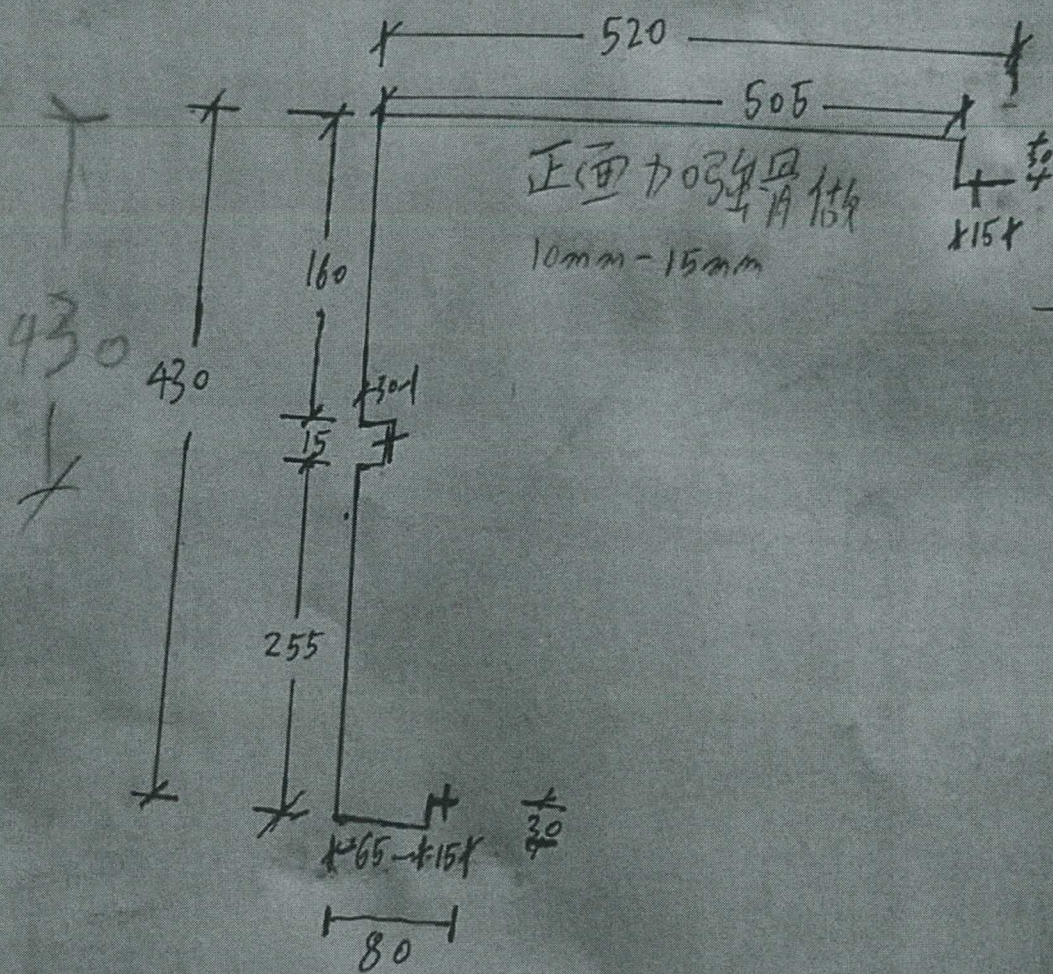 520
505
正面加強骨做
10mm-15mm
30
15
160
430
430
30
15
255
65
15
30
80